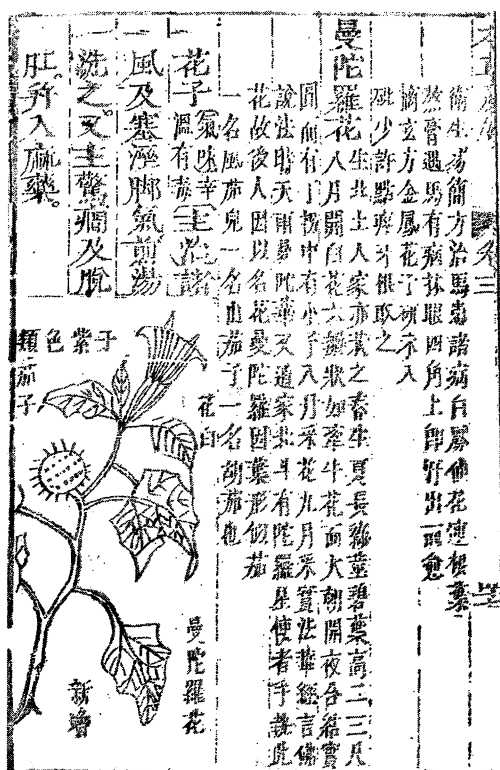 本草原始 卷三
衛生易簡方治馬患諸病白鳳仙花連根葉
熬膏遇馬有病抹眼四角上即汗出而愈
摘玄方金鳳花子研末入
砒少許點疼牙根取之
曼陀羅花 生北土人家亦栽之春生夏長獨莖碧葉高二三尺
八月開白花六瓣狀如牽牛花而大朝開夜合結實
圓而有丁拐中有小子八月采花九月采實法華經言佛
說法時天雨曼陀華又道家北斗有陀羅星使者手執此
花故後人因以名花曼陀羅因葉形似茄
一名風茄兒一名山茄子一名胡茄也
花子 氣味辛溫有毒 主治諸
風及寒溼脚氣煎湯
洗之又主驚癇及脫
肛并入麻藥。
花白
子紫色類茄子
曼陀羅花
新增